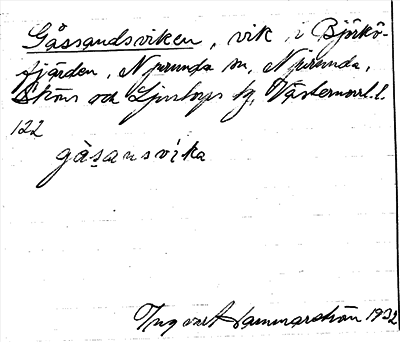 Gåssandsviken, vik i Björkö-
fjärden, Njurunda sn, Njurunda,
Sköns och Ljustorps tg, Västernorrl. l.
122
gåsansvika
Ingvart Hammarström 1932